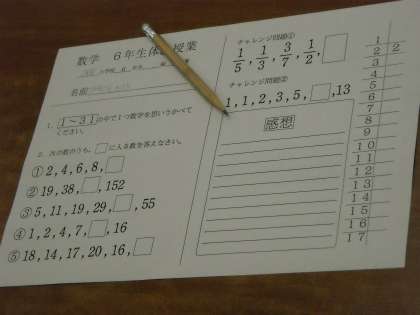 数学 6年生体験授業
名前
1. 1～31の中で1つ数字を思いうかべて
ください。
2. 次の数のうち、□に入る数を答えなさい。
① 2, 4, 6, 8, □
② 19, 38, □, 152
③ 5, 11, 19, 29, □, 55
④ 1, 2, 4, 7, □, 16
⑤ 18, 14, 17, 20, 16, □
チャレンジ問題①
1/5, 1/3, 3/7, 1/2, □
チャレンジ問題②
1, 1, 2, 3, 5, □, 13
感想
1
2 2
3
4
5
6
7
8
9
10
11
12
13
14
15
16
17